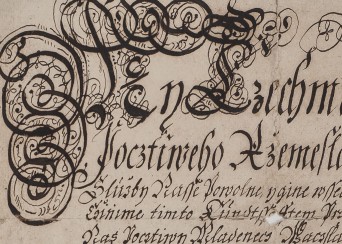 My Czechm
Pocztiweho Rzemesla
Služby Nasse Powolne y gine wsse
Cžinime timto Kundtsſaftem Prz
Nas Pocztiwy Mladenecz Waczla